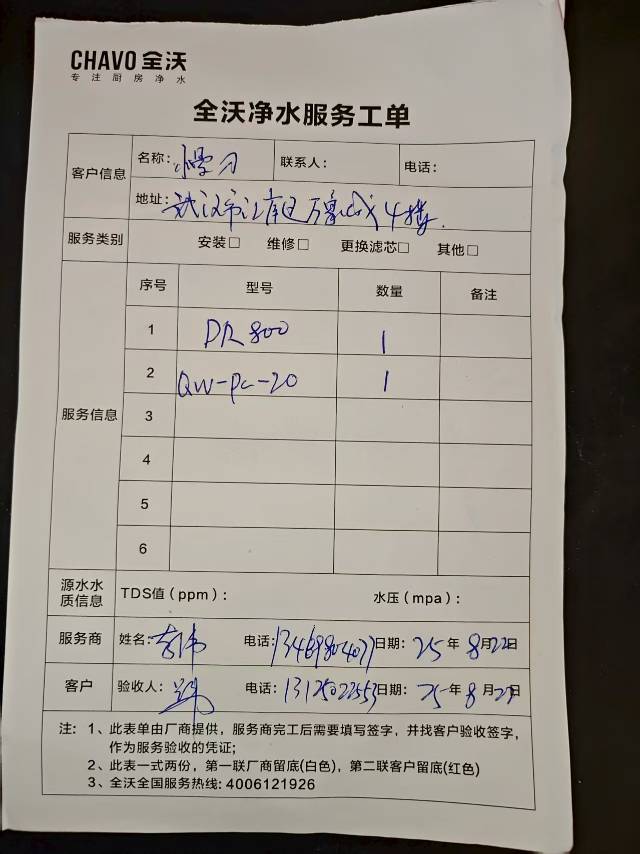 CHAVO 全沃
专注厨房净水
全沃净水服务工单
客户信息
名称: 联系人: 电话:
地址: 武汉市江 区万 城4楼
服务类别 安装□ 维修□ 更换滤芯□ 其他□
服务信息
序号 型号 数量 备注
1 DR800 1
2 QW-PC-20 1
3
4
5
6
源水水质信息 TDS值（ppm）: 水压（mpa）:
服务商 姓名: 电话: 日期: 25年8月22日
客户 验收人: 电话: 13125022553 日期: 25年8月22日
注: 1、此表单由厂商提供，服务商完工后需要填写签字，并找客户验收签字，
作为服务验收的凭证;
2、此表一式两份，第一联厂商留底(白色)，第二联客户留底(红色)
3、全沃全国服务热线: 4006121926